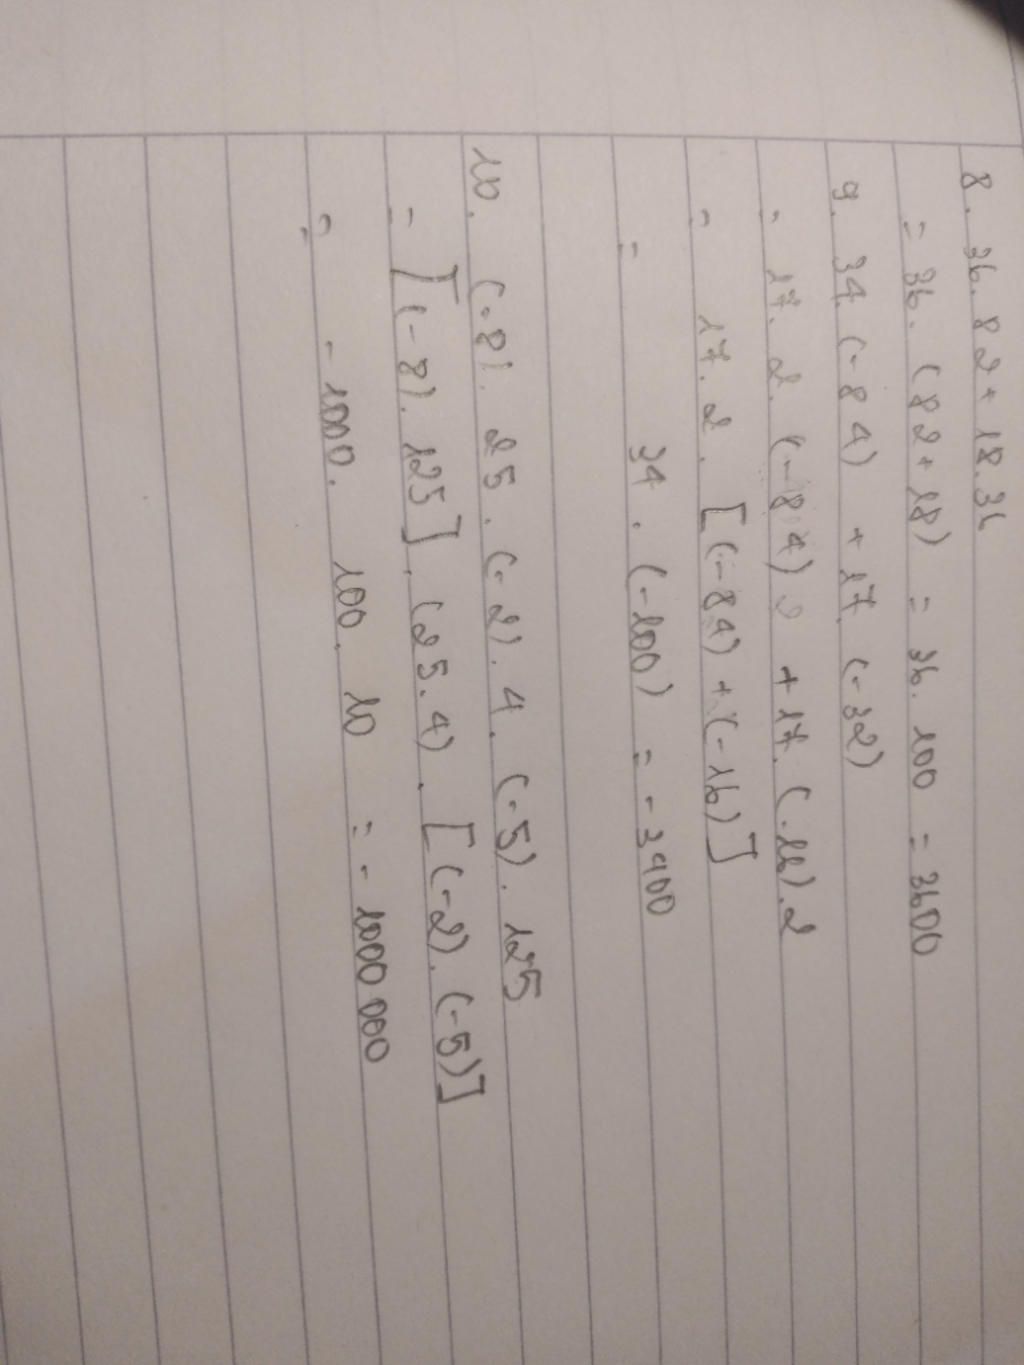 8. 36.82+18.36
= 36.(82+18) = 36.100 = 3600
9. 34.(-84) + 17.(-32)
= 17.2.(-84) + 17.(-16).2
= 17.2.[(-84)+(-16)]
= 34.(-100) = -3400
10. (-8).25.(-2).4.(-5).125
= [(-8).125].(25.4).[(-2).(-5)]
= -1000.100.10 = -1000 000